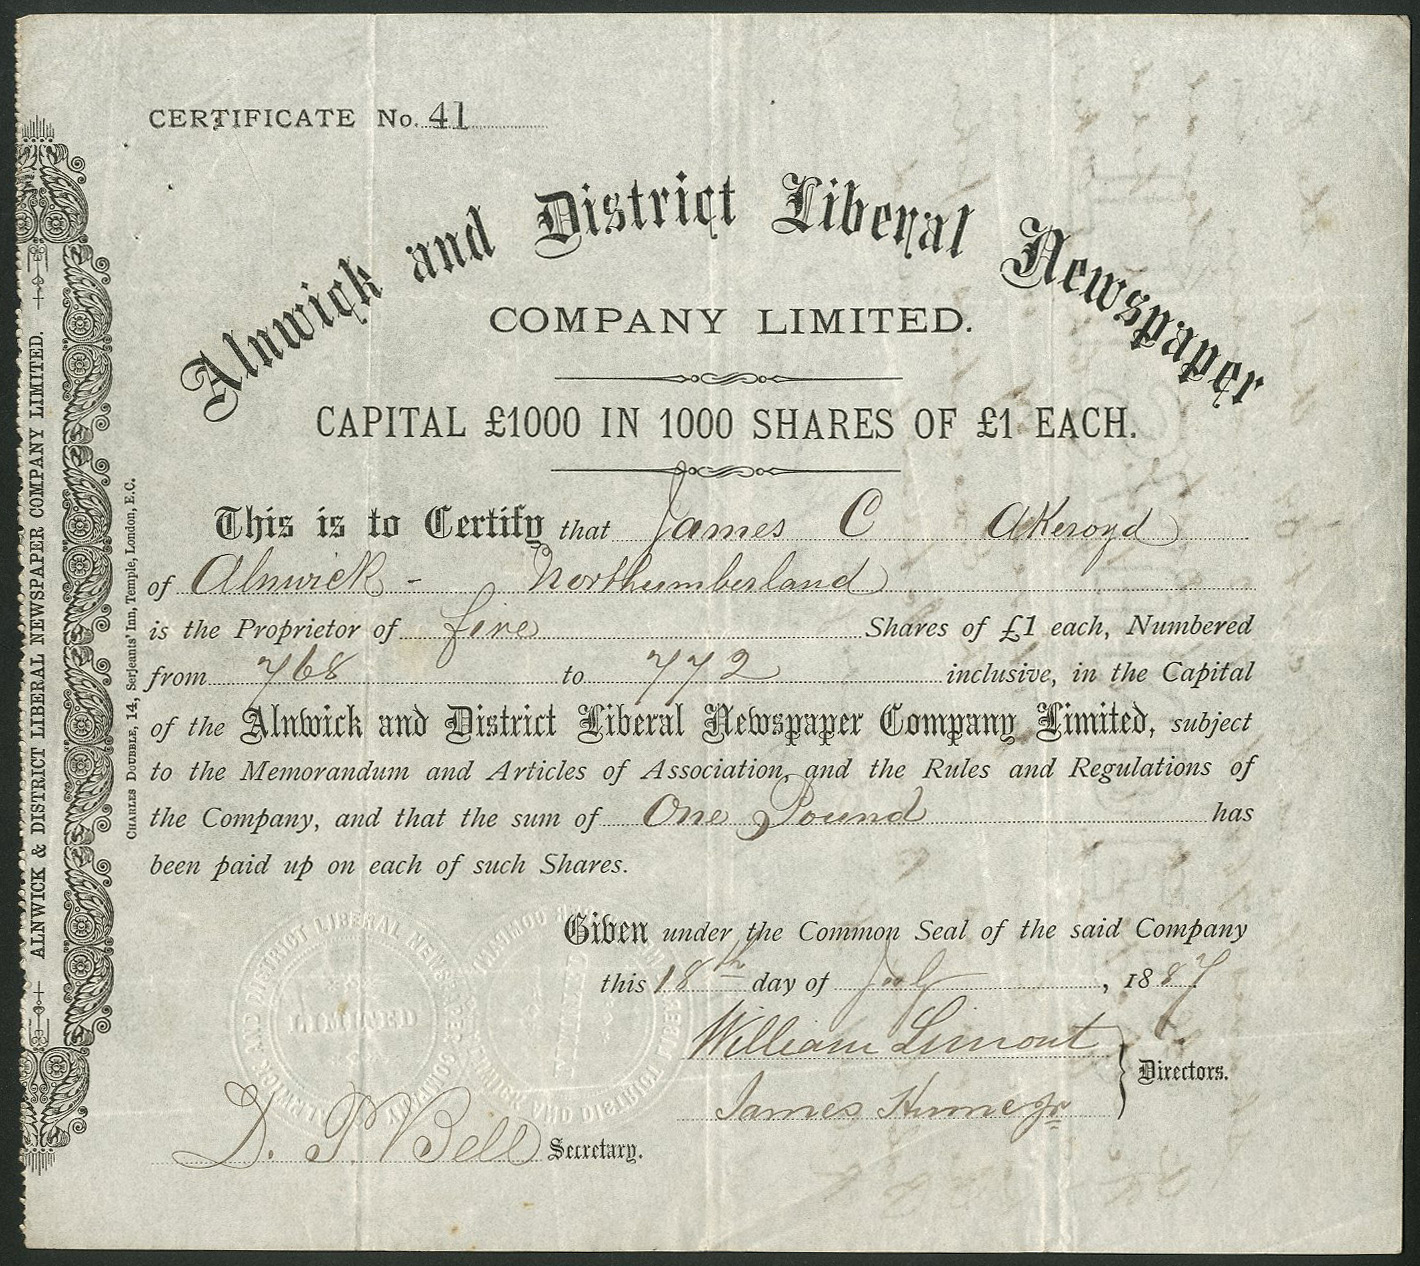 CERTIFICATE No. 41
Alnwick and District Liberal Newspaper
COMPANY LIMITED.
CAPITAL £1000 IN 1000 SHARES OF £1 EACH.
This is to Certify that James C Akeroyd
of Alnwick - Northumberland
is the Proprietor of five Shares of £1 each, Numbered
from 768 to 772 inclusive, in the Capital
of the Alnwick and District Liberal Newspaper Company Limited, subject
to the Memorandum and Articles of Association, and the Rules and Regulations of
the Company, and that the sum of One Pound has
been paid up on each of such Shares.
Given under the Common Seal of the said Company
this 18th day of July, 1887
William Limont
James Hume jr
Directors.
D. P. Bell Secretary.
ALNWICK & DISTRICT LIBERAL NEWSPAPER COMPANY LIMITED.
CHARLES DOUBLE, 14, Serjeants' Inn, Temple, London, E.C.
ALNWICK AND DISTRICT LIBERAL NEWSPAPER COMPANY
LIMITED